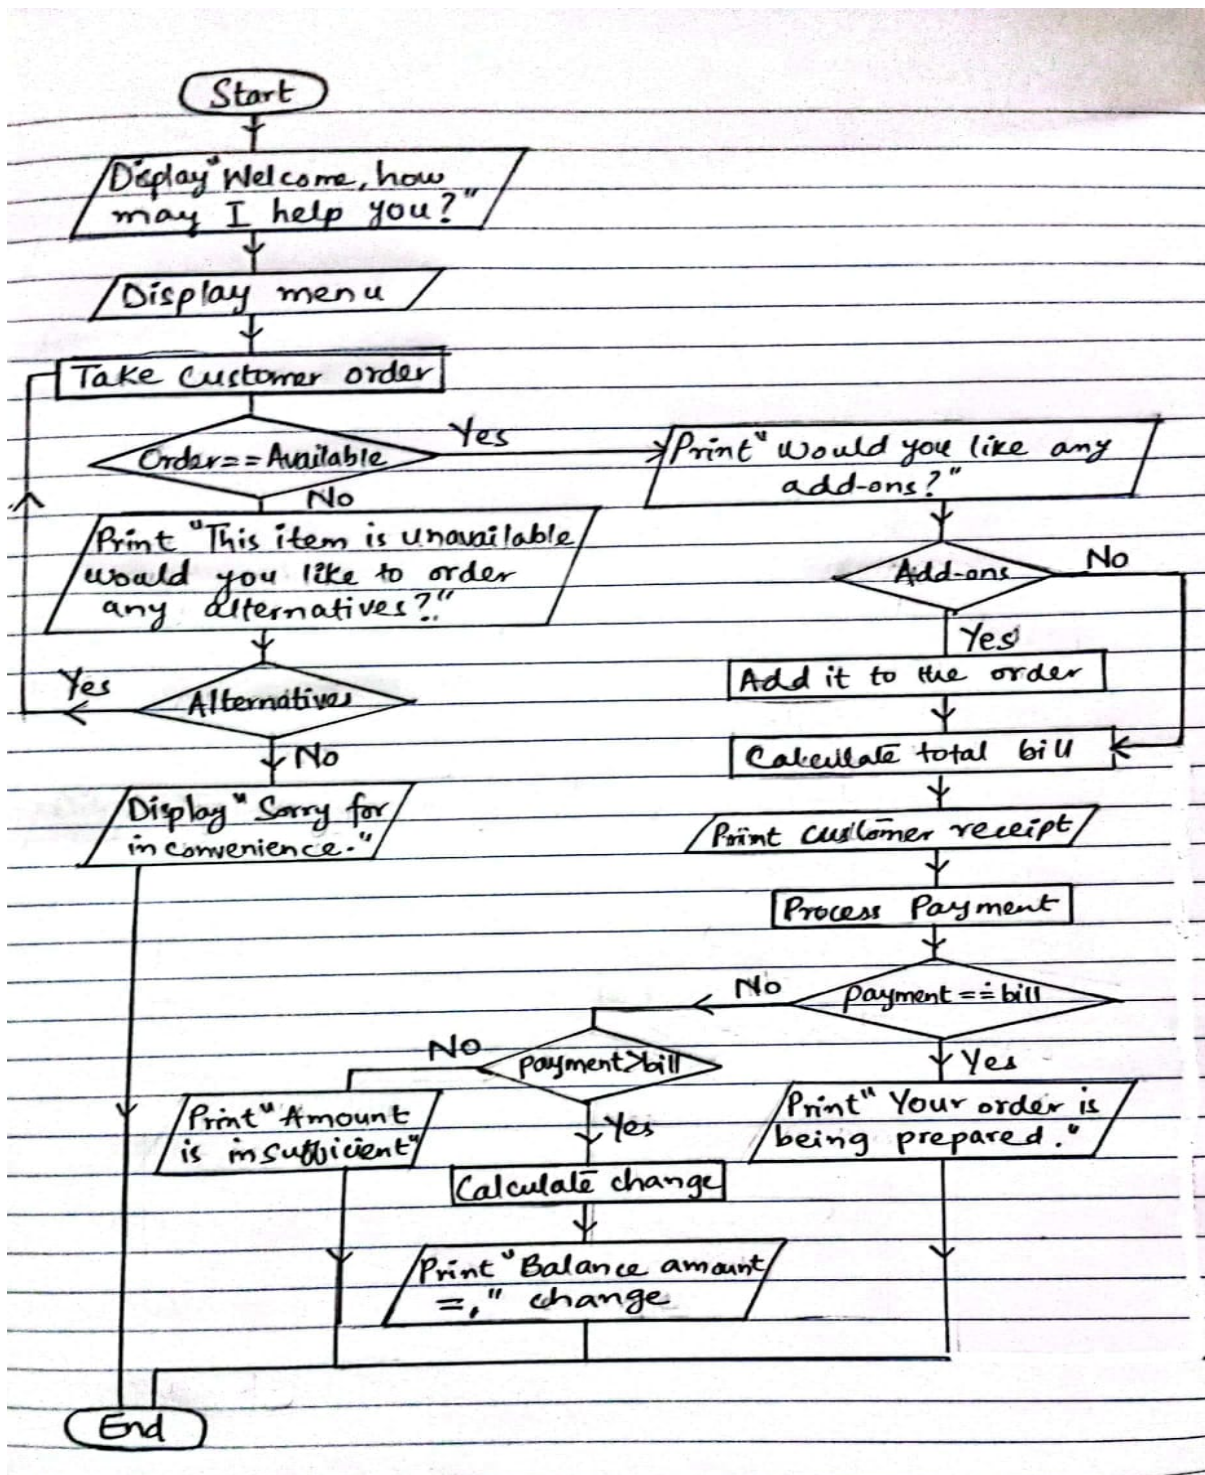 Start
Display "Welcome, how
may I help you?"
Display menu
Take customer order
Order==Available
Yes
No
Print "This item is unavailable
would you like to order
any alternatives?"
Alternatives
Yes
No
Display "Sorry for
inconvenience."
Print "Would you like any
add-ons?"
Add-ons
No
Yes
Add it to the order
Calculate total bill
Print customer receipt
Process Payment
payment==bill
No
Yes
Print "Your order is
being prepared."
payment>bill
No
Yes
Print "Amount
is insufficient"
Calculate change
Print "Balance amount
=," change
End